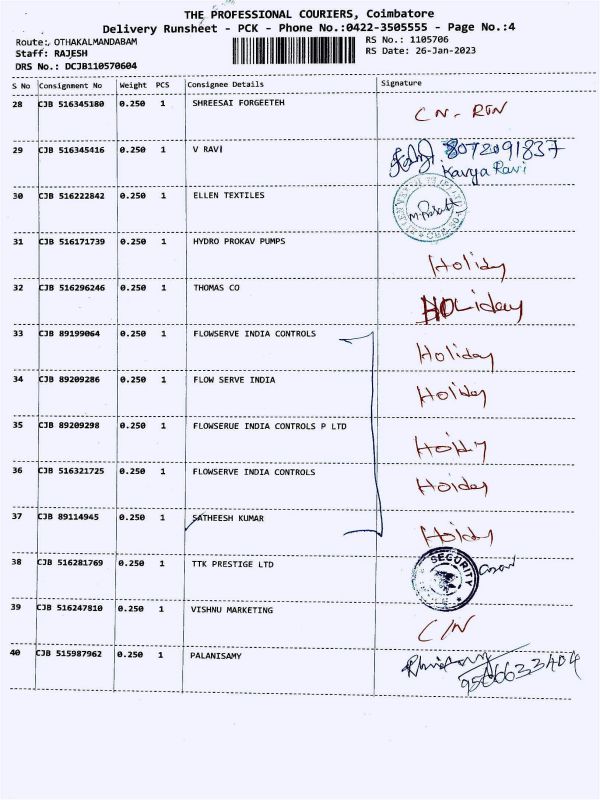 THE PROFESSIONAL COURIERS, Coimbatore
Delivery Runsheet - PCK - Phone No.:0422-3505555 - Page No.:4
Route: OTHAKALMANDABAM
RS No.: 1105706
Staff: RAJESH
RS Date: 26-Jan-2023
DRS No.: DCJB110570604
S No Consignment No Weight PCS Consignee Details Signature
28 CJB 516345180 0.250 1 SHREESAI FORGEETEH
CN - RTN
29 CJB 516345416 0.250 1 V RAVI
8072091837
Kavya Ravi
30 CJB 516222842 0.250 1 ELLEN TEXTILES
31 CJB 516171739 0.250 1 HYDRO PROKAV PUMPS
Holiday
32 CJB 516296246 0.250 1 THOMAS CO
HOLiday
33 CJB 89199064 0.250 1 FLOWSERVE INDIA CONTROLS
Holiday
34 CJB 89209286 0.250 1 FLOW SERVE INDIA
Holiday
35 CJB 89209298 0.250 1 FLOWSERUE INDIA CONTROLS P LTD
Hoidy
36 CJB 516321725 0.250 1 FLOWSERVE INDIA CONTROLS
Hoiday
37 CJB 89114945 0.250 1 SATHEESH KUMAR
Hoidy
38 CJB 516281769 0.250 1 TTK PRESTIGE LTD
SECURITY
39 CJB 516247810 0.250 1 VISHNU MARKETING
C/N
40 CJB 515987962 0.250 1 PALANISAMY
9566633404